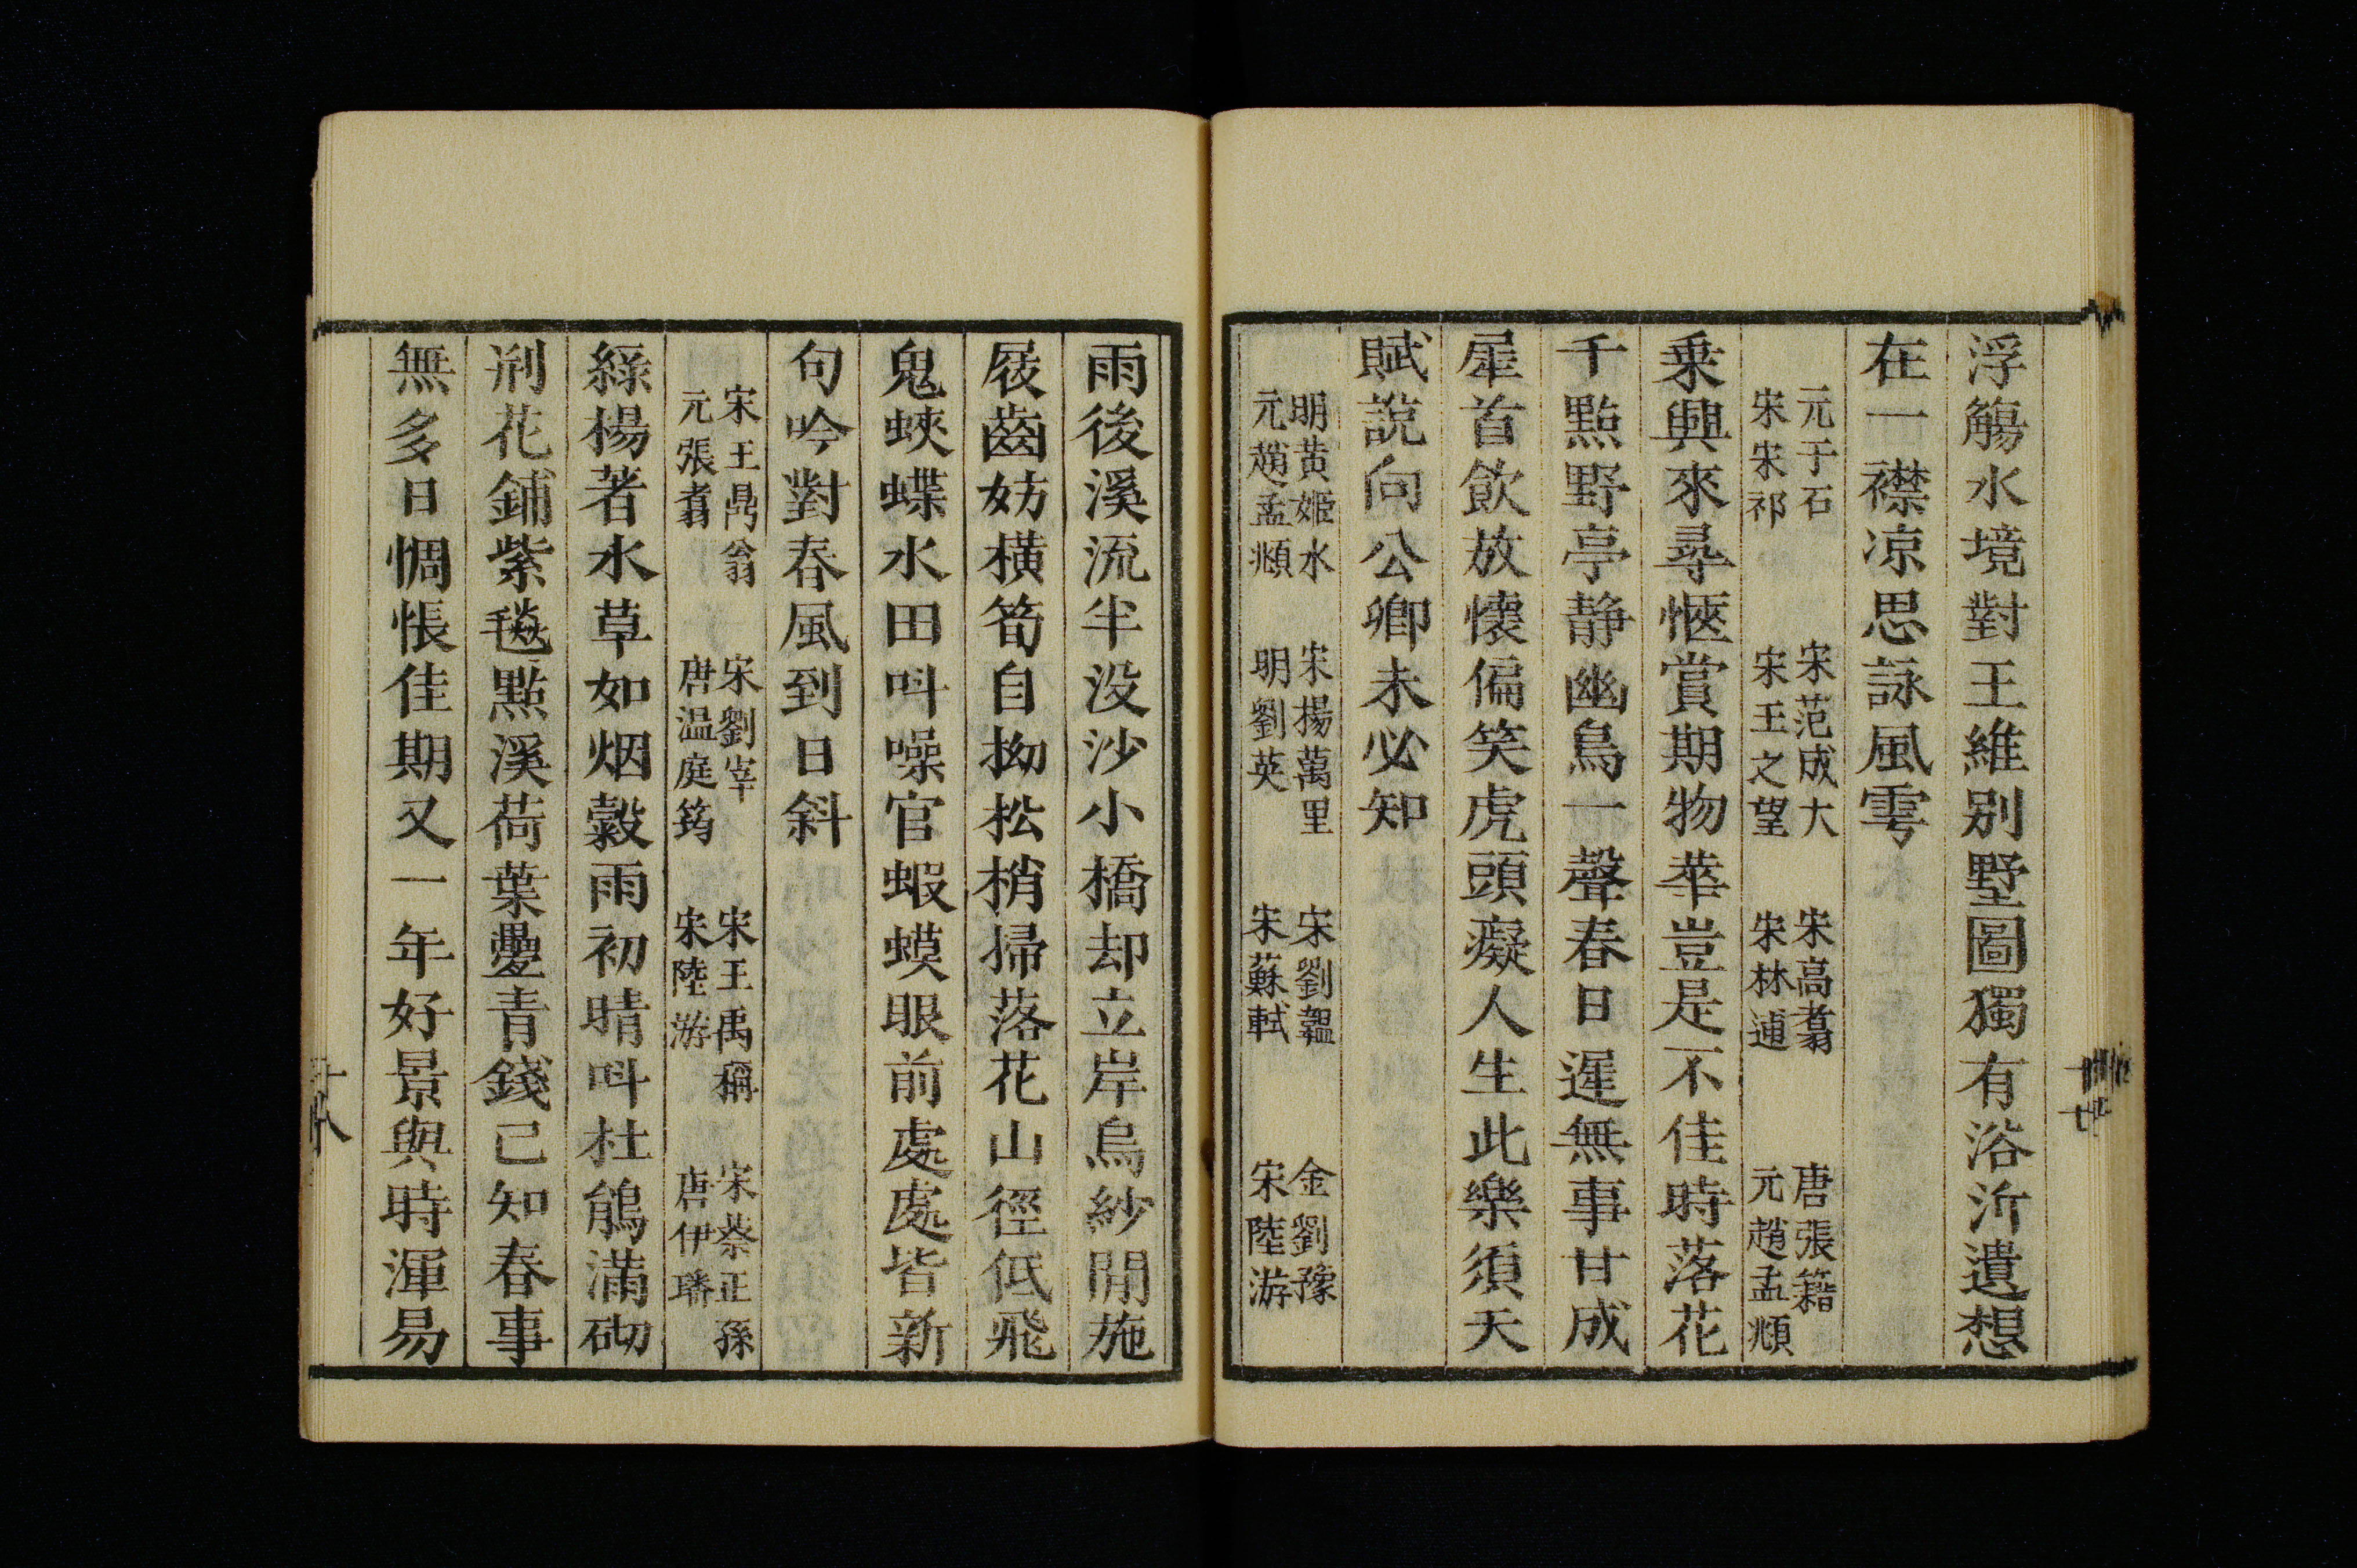 浮觴水境對王維別墅圖獨有浴沂遺想
在一襟凉思詠風雩
元于石 宋范成大 宋高翥 唐張籍
宋宋祁 宋王之望 宋林逋 元趙孟頫
乗興來尋愜賞期物華豈是不佳時落花
千點野亭静幽鳥一聲春日遲無事甘成
犀首飲放懷偏笑虎頭癡人生此樂須天
賦說向公卿未必知
明黄姬水 宋揚萬里 宋劉韞 金劉豫
元趙孟頫 明劉英 宋蘇軾 宋陸游
雨後溪流半没沙小橋却立岸烏紗閒施
屐齒妨橫筍自拗松梢掃落花山徑低飛
鬼蛺蝶水田呌噪官蝦蟆眼前處處皆新
句吟對春風到日斜
宋王鼎翁 宋劉宰 宋王禹偁 宋蔡正孫
元張翥 唐温庭筠 宋陸游 唐伊璠
綠楊著水草如烟榖雨初晴呌杜鵑滿砌
荆花鋪紫毯點溪荷葉疊青錢已知春事
無多日惆悵佳期又一年好景與時渾易